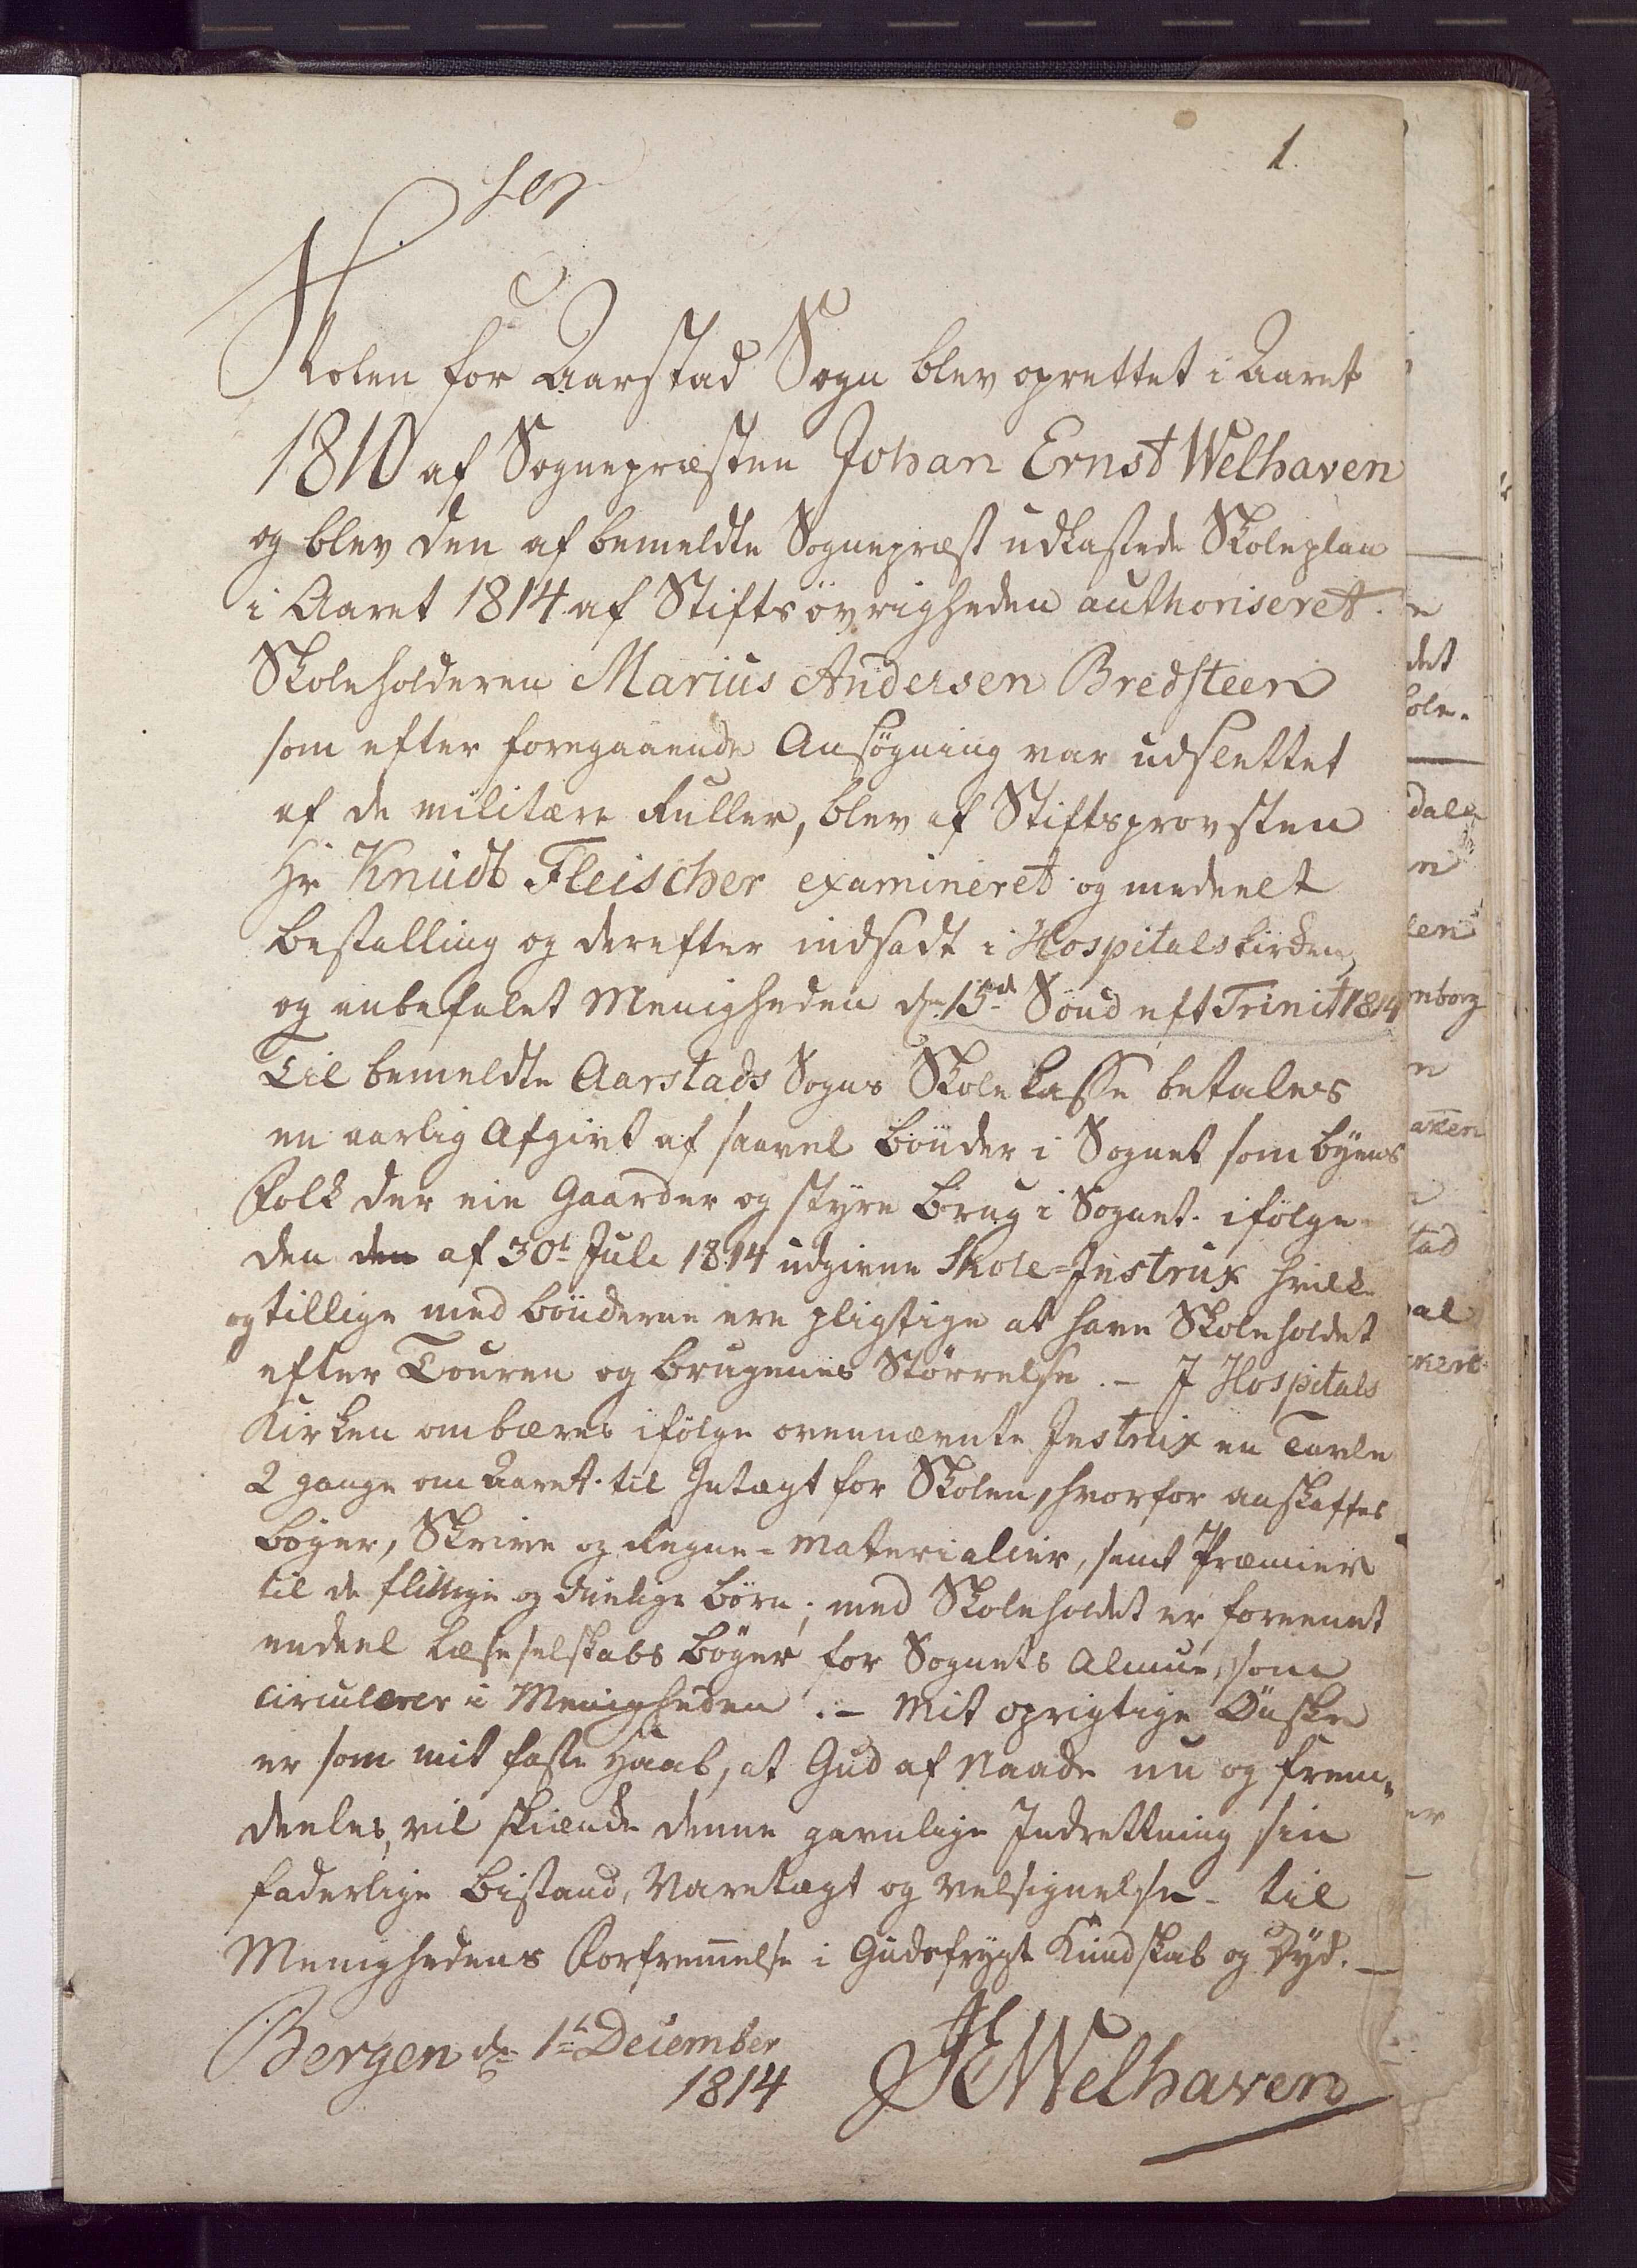 1.
Skolen for Aarstad Sogn blev oprettet i Aaret
1810 af Sognepræsten Johan Ernst Welhaven
og blev den af bemeldte Sognepræst udkastede Skoleplan
i Aaret 1814 af Stiftsøvrigheden authoriseret.
Skoleholderen Marius Andersen Bredsteen
som efter foregaaende Ansøgning var udslettet
af de militære Ruller, blev af Stiftsprovsten
Hr Knudt Fleischer examineret og medeelt
Bestalling og derefter indsadt i Hospitalskirken,
og anbefalet Menigheden d. 15de Sønd eft Trinit 1814
Til bemeldte Aarstads Sogns Skolekasse betales
en aarlig Afgivt af saavel Bönder i Sognet som byens
Folk der eie Gaarder og styre Brug i Sognet. ifølge
den den af 30t Juli 1814 udgivne Skole=Instrux hvilke
og tillige med bönderne ere pligtige at have Skoleholdet
efter Touren og brugenes Størrelse. - I Hospitals
Kirken ombæres ifølge ovennævnte Instrux en Tavle
2 gange om Aaret til Indtægt for Skolen, hvorfor anskaffes
bøger, Skrive og Regne-Materialier, samt Præmier
til de flittige og duelige børn; med Skoleholdet er foreenet
endeel Læseselskabs bøger for Sognets Almue, som
circulerer i Menigheden. - Mit oprigtige Ønske
er som mit faste Haab, at Gud af Naade nu og frem=
deeles, vil skiænke denne gavnlige Indrettning sin
faderlige Bistand, Varetægt og velsignelse - til
Menighedens Forfremmelse i Gudsfrygt Kundskab og Dyd. -
Bergen d. 1t December
1814
JEWelhaven